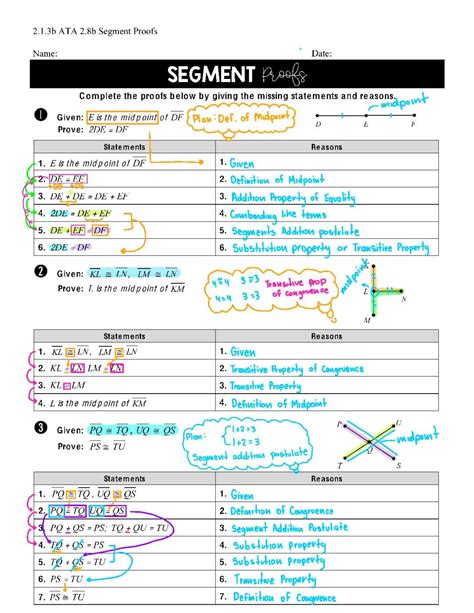 2.1.3b ATA 2.8b Segment Proofs
Name: Date:
SEGMENT Proofs
Complete the proofs below by giving the missing statements and reasons.
1 Given: E is the midpoint of DF
Prove: 2DE = DF
Plan: Def. of Midpoint
midpoint
D E F
Statements Reasons
1. E is the midpoint of DF 1. Given
2. DE = EF 2. Definition of Midpoint
+DE +DE
3. DE + DE = DE + EF 3. Addition Property of Equality
4. 2DE = DE + EF 4. Combanding like terms
5. DE + EF = DF 5. Segments Addition postulate
6. 2DE = DF 6. Substitution property or Transitive Property
2 Given: KL ≅ LN, LM ≅ LN
Prove: L is the midpoint of KM
4=4 3=3
Transitive Prop of congruence
midpoint
K
L
N
M
Statements Reasons
1. KL ≅ LN, LM ≅ LN 1. Given
2. KL = LN LM = LN 2. Transitive Property of Congruence
3. KL = LM 3. Transitive Property
4. L is the midpoint of KM 4. Definition of Midpoint
3 Given: PQ ≅ TQ, UQ ≅ QS
Prove: PS ≅ TU
Plan: 1+2=3
1+2=3
Segment addition postulate
P U
Q
midpoint
T S
Statements Reasons
1. PQ ≅ TQ, UQ ≅ QS 1. Given
2. PQ = TQ UQ = QS 2. Definition of Congruence
3. PQ + QS = PS; TQ + QU = TU 3. Segment Addition Postulate
4. TQ + QS = PS 4. Substution property
5. TQ + QS = TU 5. Substution property
6. PS = TU 6. Transitive Property
7. PS ≅ TU 7. Definition of Congruence